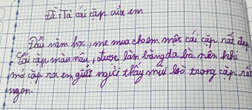 Đề: Tả cái cặp của em
Đầu năm học, mẹ mua cho em một cái cặp rất đẹp
cái cặp màu nâu, được làm bằng da bò nên khi
mở cặp ra em ngửi thấy mùi bò trong cặp rất
ngon.